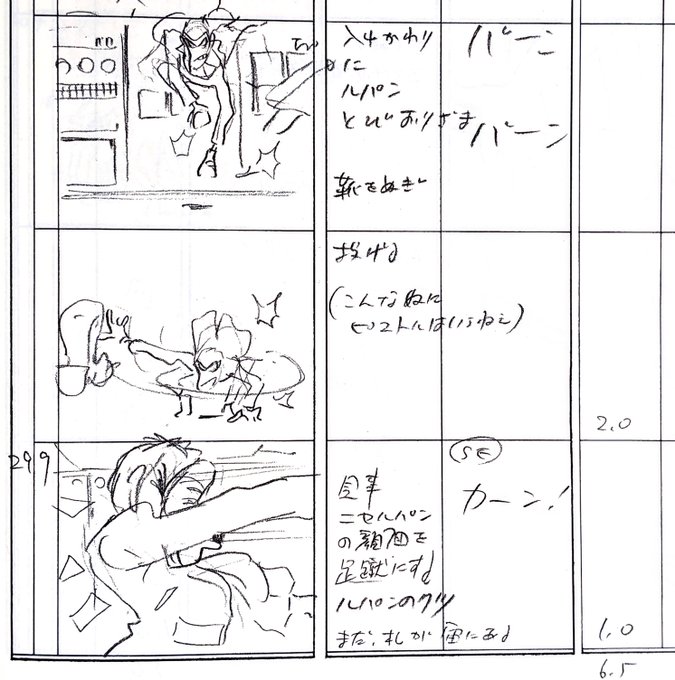 入れかわり
に
ルパン
とびおりざま
靴をぬぎ
バーン
バーン
投げる
(こんな奴に
ピストルはいらねえ)
2.0
299
SE
カーン!
見事
ニセルパン
の顔面を
足蹴にする
ルパンのクツ
まだ、札が宙にある
1.0
6.5